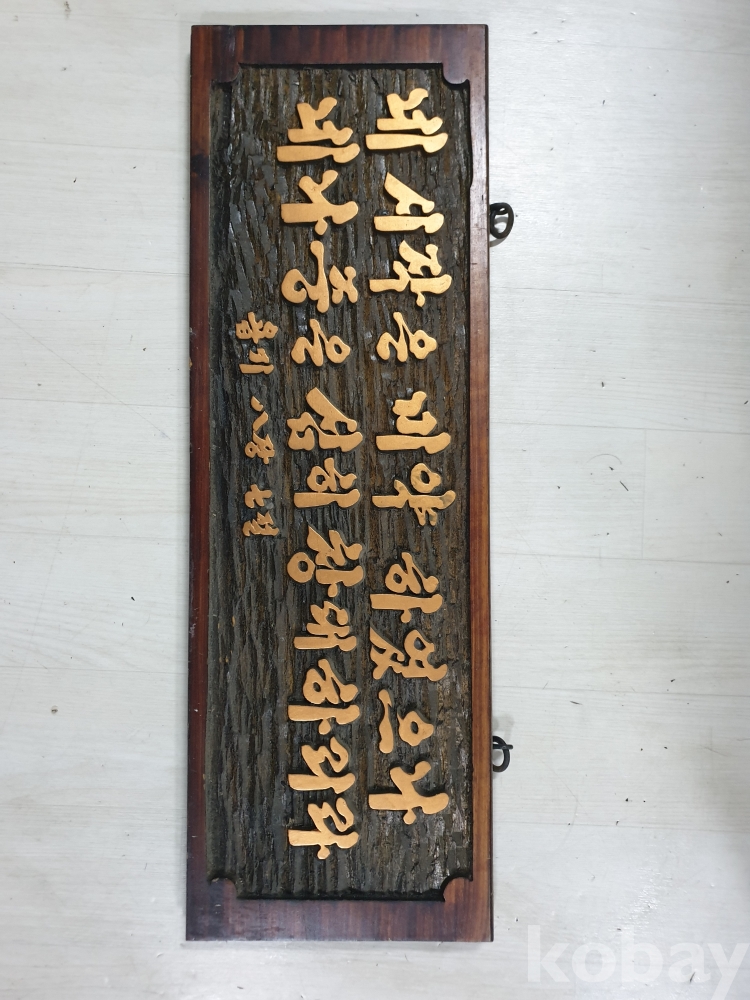 네 시작은 미약 하였으나
네 나중은 심히 창대 하리라
욥기 八장 七절
kobay